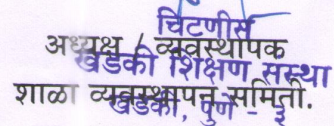 चिटणीस
अध्यक्ष / व्यवस्थापक
खडकी शिक्षण संस्था
शाळा व्यवस्थापन समिती.
खडकी, पुणे - ३